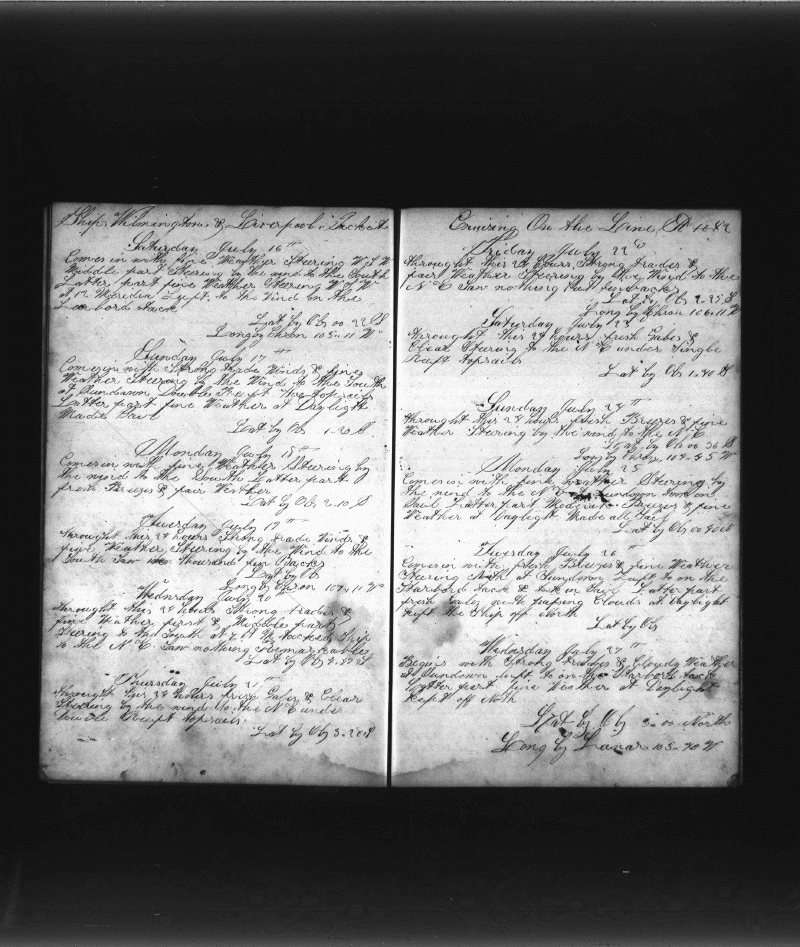 Ship Wilmington & Liverpool Packet
Saturday July 16th
Comes in with fine Weather Steering W S W
Middle part Steering by the wind to the South
Latter part fine Weather Steering W S W
at Meredin Luft to the Wind on the
Larbord tack
Lat by Obs 00 22 S
Long by Chron 105.11 W
Sunday July 17th
Comes in with Strong trade Winds & fine
Weather Steering by the Wind to the South
at Sundown Double Reeft the topsails
Latter part fine Weather at Daylight
Made Sail
Lat by Obs 1.20 S
Monday July 18th
Comes in with fine Weather Steering by
the wind to the South Latter part
fresh Breezes & fair Wether
Lat by Obs 2.10 S
Tuesday July 19th
throught this 24 hours Strong trade Winds &
fine Weather Steering by the Wind to the
South Saw thousand fin Backs
Lat by Obs
Long by Chron 107.11 W
Wednsday July 20
throught this 24 hours Strong trades &
fine Weather first & Middle part
Steering to the South At 7 A M tacked Ship
to the N E Saw nothing Remarkables
Lat by Obs 4.52 S
Thursday July 21st
throught this 24 hours fresh Gales & Clear
Steering by the wind to the N E under
Double Reeft topsails
Lat by Obs 3.20 S
Cruising On the Line AD 1842
Friday July 22d
throught this 24 hours Strong trades &
fair Weather Steering by the Wind to the
N E Saw nothing but finbacks
Lat by Obs 2.25 S
Long by Chron 106.11 W
Saturday July 23
throught this 24 hours fresh Gales &
Clear Steering to the N E under Single
Reeft topsails
Lat by Obs 1.40 S
Sunday July 24th
throught this 24 hours fresh Breezes & fine
Weather Steering by the wind to the N E
Lat by Obs 00 36 S
Long by Chron 104.35 W
Monday July 25
Comes in with fine weather Steering by
the wind to the N E at Sundown took in
Sail Latter part Moderate Breezes & fine
Weather at Daylight Made all Sail
Lat by Obs 00 40 N
Tuesday July 26
Comes in with fresh Breezes & fine Weather
Steering North at Sundown Luft to on the
Starbord tack & took in Sail Latter part
fresh Gales with passing Clouds at Daylight
Kept the Ship off North
Lat by Obs
Wednsday July 27th
Begins with Strong trades & Cloudy Weather
At Sundown luft to on the Starbord tack
Latter part fine Weather at Daylight
Kept off North
Lat by Obs 3.00 North
Long by Lunar 105.40 W